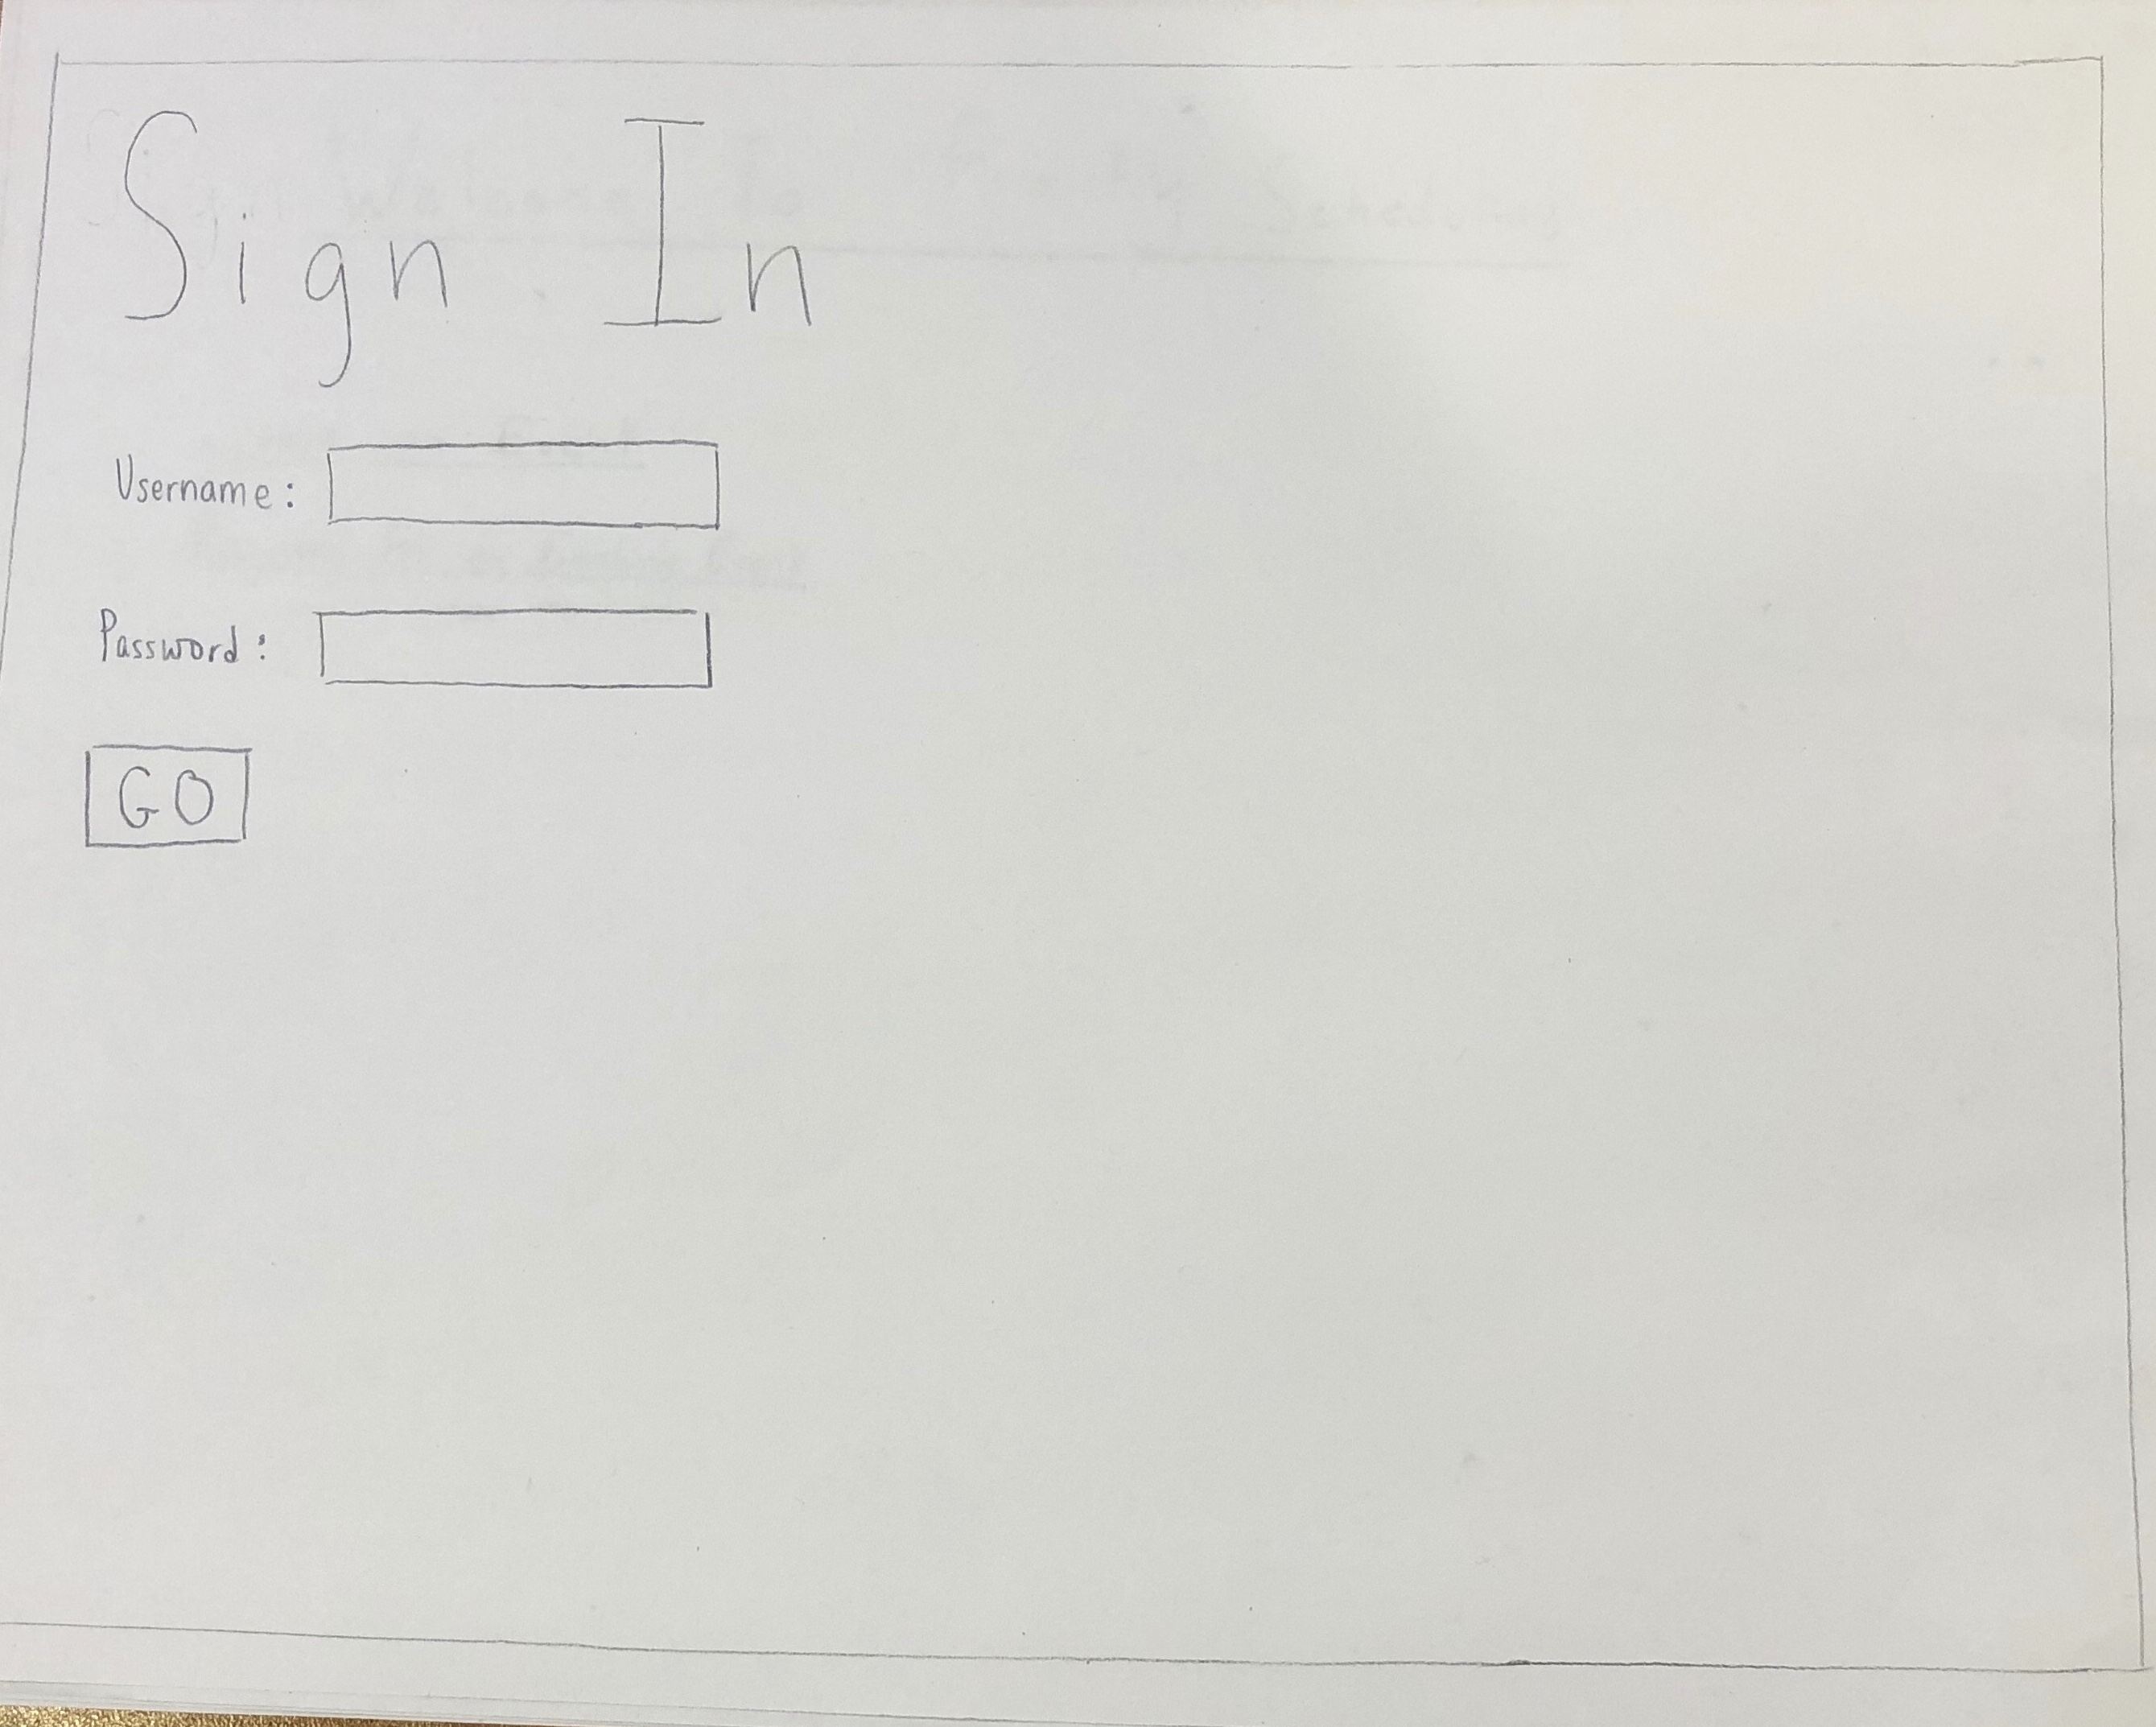 Sign In
Username:
Password:
GO